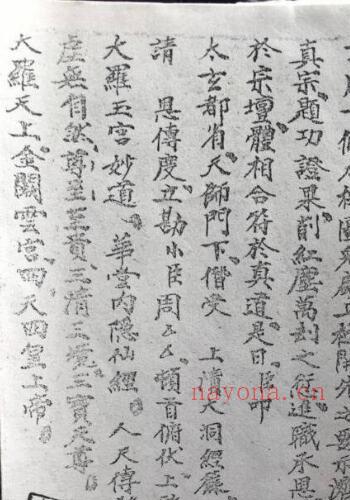 真宗題功證果削紅塵萬刦之 進職承恩
於宗壇體相合符於真道是日 叩
太玄都省天師門下僭受 上清大洞經籙
請 恩傳度立勘小臣周厶厶頓首俯伏上
大羅玉宮妙道 華堂內隱仙經 人天傳
虛無自然尊至至貴三清三境三寶天尊
大羅天上金闕雲宮四天四皇上帝
nayona.cn